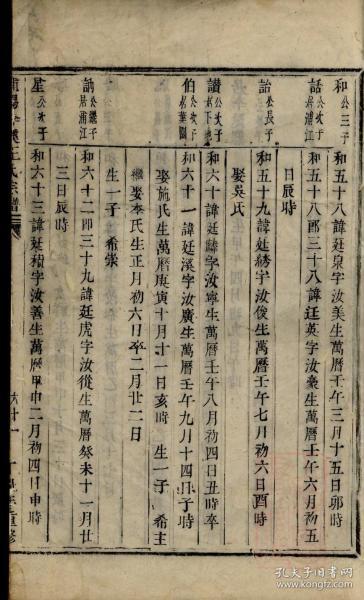 和公三子
和五十八諱廷泉字汝美生萬曆壬午三月十五日卯時
話公次子居浦江
和五十八即三十八諱廷英字汝衆生萬曆壬午六月初五
日辰時
詒公長子
和五十九諱廷綺字汝俊生萬曆壬午七月初六日酉時
娶吳氏
讚公次子
和六十諱廷驎字汝寧生萬曆壬午八月初四日丑時卒
伯公次子
和六十一諱廷溪字汝廣生萬曆壬午九月十四日子時
娶施氏生萬曆庚寅十月十一日亥時 生一子 希主
繼娶李氏生正月初六日卒二月廿二日
生一子 希崇
訥公繼子居浦江
和六十二即三十九諱廷虎字汝從生萬曆癸未十一月廿
三日辰時
星公次子
和六十三諱廷積字汝善生萬曆甲申二月初四日申時
王氏宗譜
重修
孔夫子旧书网